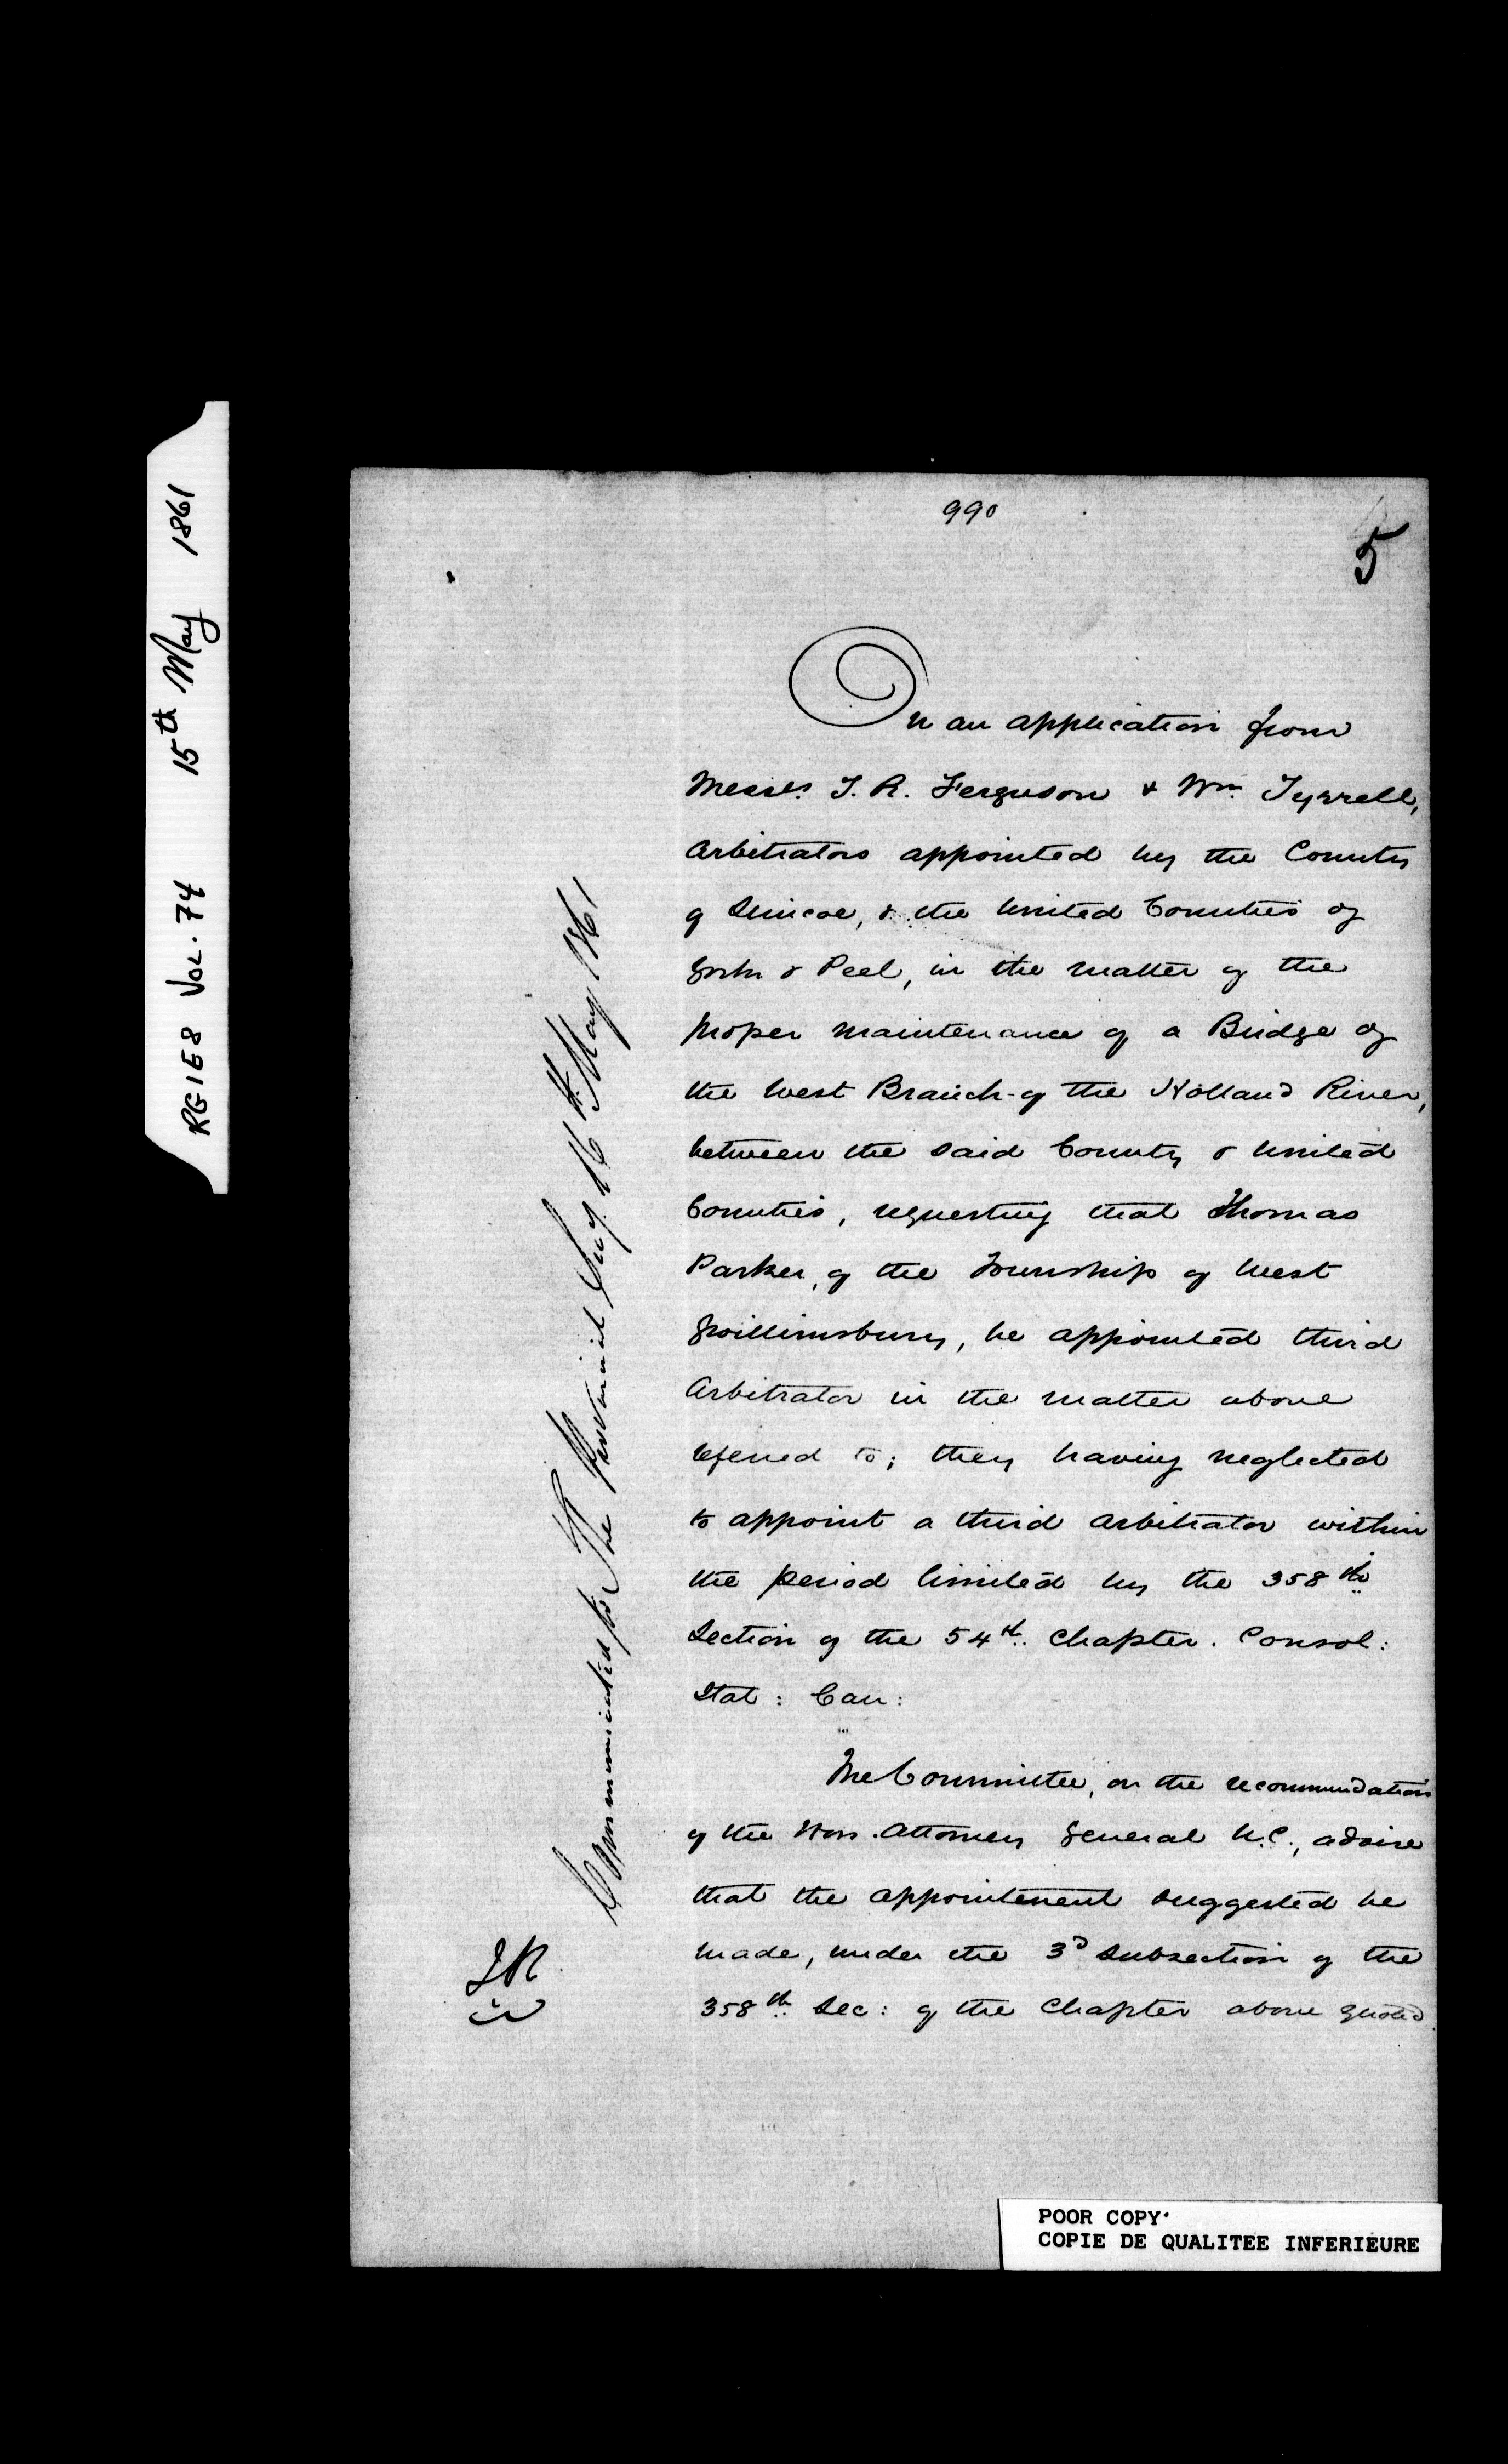 RG1E8 VOL. 74 15th May 1861
990
5
On an application from
Messrs. T. R. Ferguson & Wm. Tyrrell,
Arbitrators appointed by the County
of Simcoe, & the United Counties of
York & Peel, in the matter of the
proper maintenance of a Bridge of
the West Branch of the Holland River,
between the said County & United
Counties, requesting that Thomas
Parker, of the Township of West
Gwillimsbury, be appointed third
Arbitrator in the matter above
referred to; they having neglected
to appoint a third Arbitrator within
the period limited by the 358th
Section of the 54th Chapter. Consol:
Stat: Can:
The Committee, on the recommendation
of the Hon. Attorney General U.C., advise
that the appointment suggested be
made, under the 3d Subsection of the
358th Sec: of the Chapter above quoted.
Communicated to The Provincial Secy. 16th May 1861
POOR COPY.
COPIE DE QUALITEE INFERIEURE